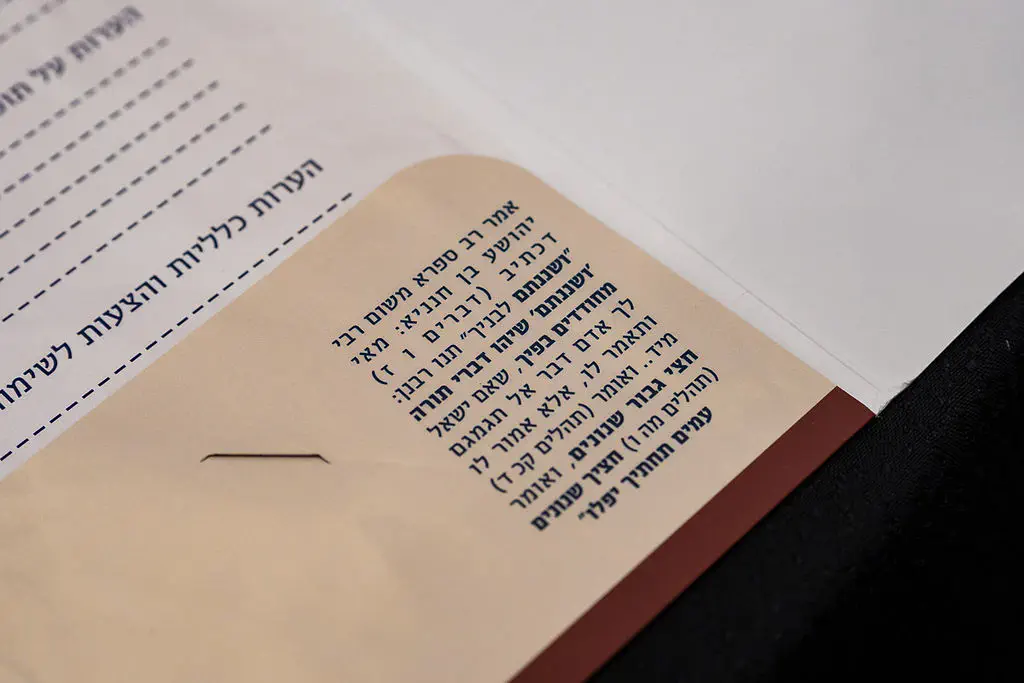 הערות על
הערות כלליות והצעות
אמר רב ספרא משום רבי
יהושע בן חנניא: מאי
דכתיב (דברים ו ז)
"ושננתם לבניך" תנו רבנן:
'ושננתם' שיהו דברי תורה
מחודדים בפיך, שאם ישאל
לך אדם דבר אל תגמגם
ותאמר לו, אלא אמור לו
מיד.. ואומר (תהלים קכ ד)
חצי גבור שנונים, ואומר
(תהלים מה ו) חציך שנונים
עמים תחתיך יפלו"